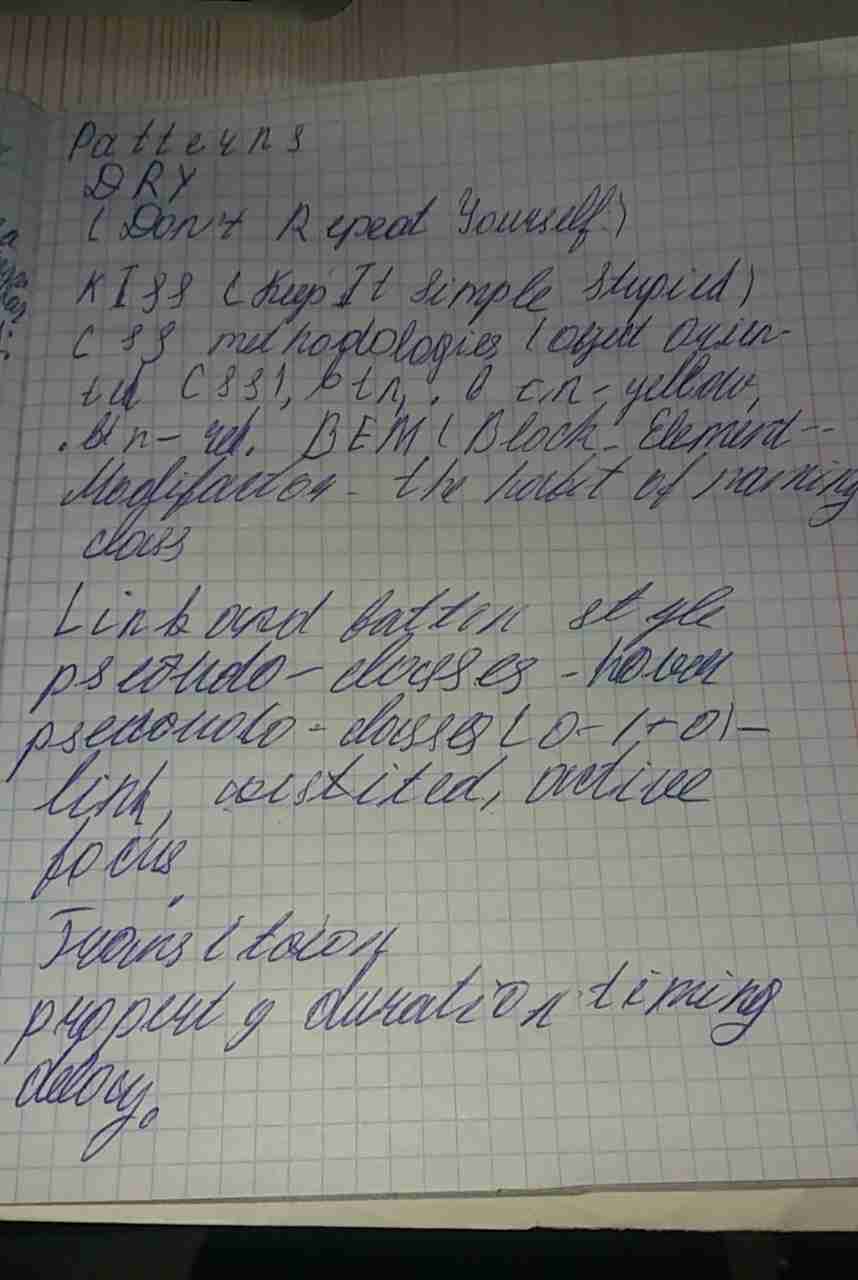 Patterns
DRY
(Don't Repeat Yourself)
KISS (Keep It Simple Stupied)
CSS methodologies (object orien-
ted CSS), btn, .btn-yellow,
.btn-red. BEM (Block_Element--
Modifacton - the habit of naming
class
Link and button style
pseoudo-classes - hover
pseuoudo-classes (0-1+0) -
link, visited, active
focus.
Transition
property duration timing
delay.